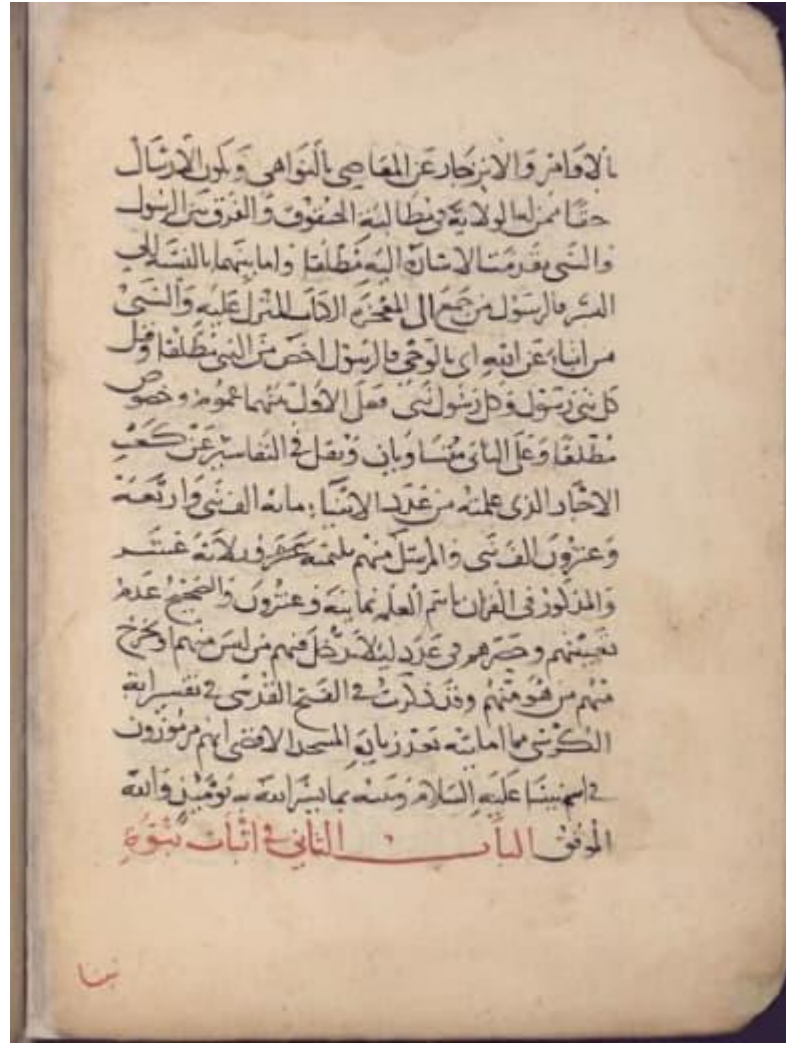 بالاوامر والانزجار عن المعاصى بالنواهى ويكون الارسال
حقا ممن له الولاية فى مطالبة الحقوق والفرق بين الرسول
والنبى تقدمت الاشارة اليه مطلقا واما بينهما بالنسبة الى
البشر فالرسول من جمع الى المعجزة الكتاب المنزل عليه والنبى
من انباء عن الله اى بالوحى فالرسول اخص من النبى مطلقا وقيل
كل نبى رسول وكل رسول نبى فعلى الاول منهما عموم وخصوص
مطلقا وعلى الثانى متساويان ونقل فى التفاسير عن كعب
الاحبار الذى علمته من عدد الانبياء مائة الف نبى واربعة
وعشرون الف نبى والمرسل منهم ثلثمئة وثلاثة عشر
والمذكور فى القران باسم العلم ثمانية وعشرون والصحيح عدم
تعيينهم وحصرهم فى عدد ليلا يدخل فيهم من ليس منهم او يخرج
منهم من هو منهم وقد ذكرت فى الفتح القدسى فى تفسير اية
الكرسى مما امليته بعد زيارة المسجد الاقصى انهم مرموزون
فى اسم نبينا عليه السلام وبينته بما يسر الله به توفيقى والله
الموفق الباب الثانى فى اثبات نبوة
نبينا